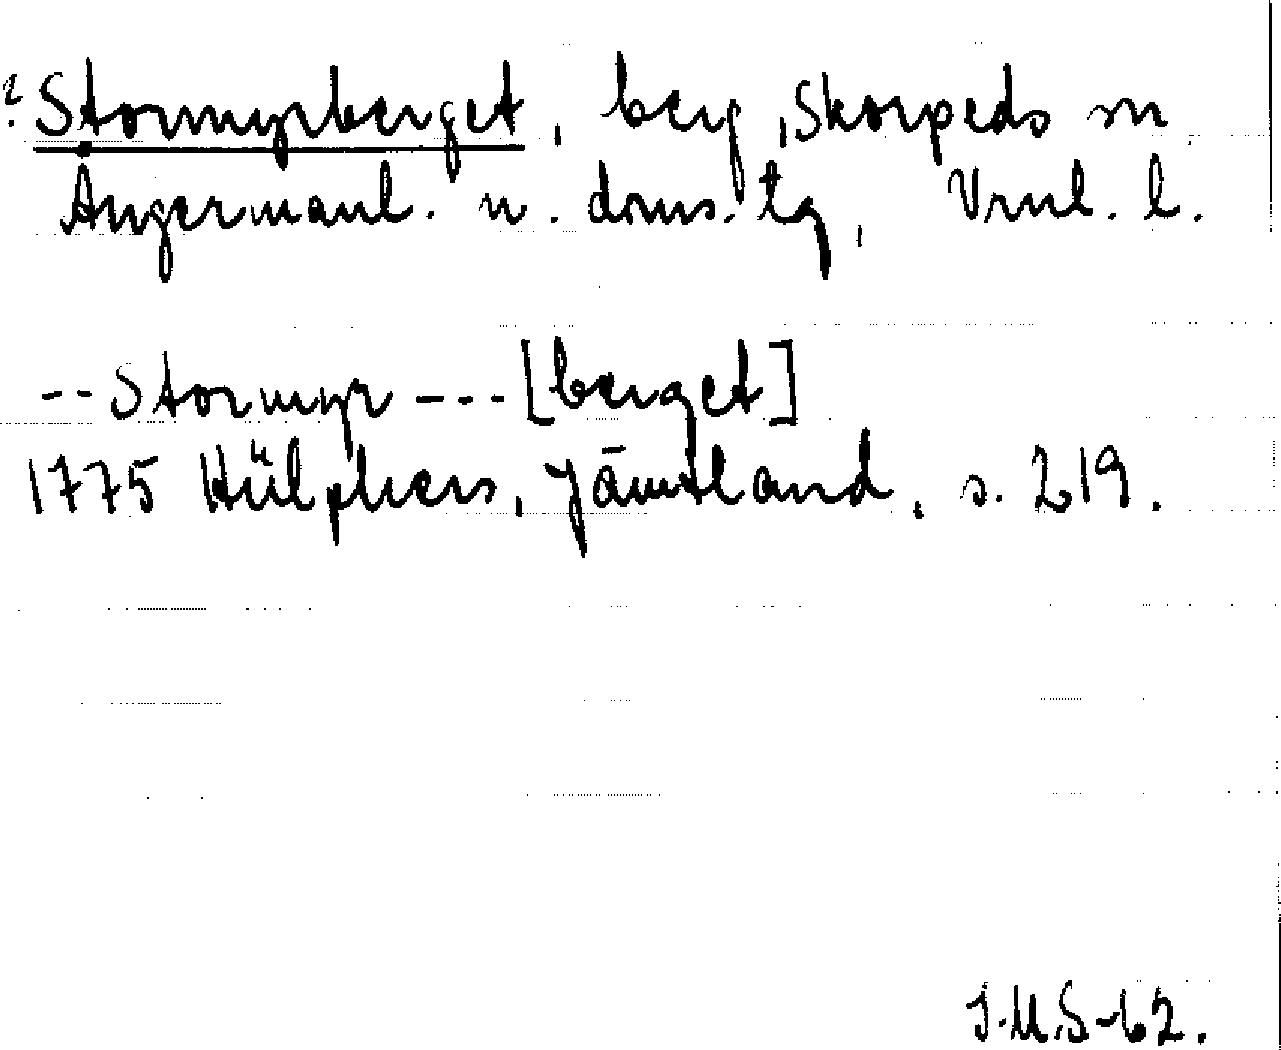 ? Stormyrberget, berg, Skorpeds sn
Ångermanl. n. doms. tg, Vrnl. l.
-- Stormyr --- [berget]
1775 Hülphers, Jämtland, s. 219.
I.M.S-62.